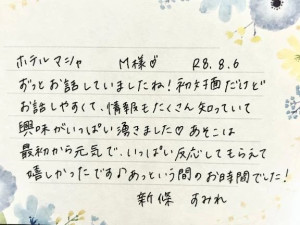 ホテル マシャ M様♡ R8.8.6
ずっとお話していましたね!初対面だけど
お話しやすくて、情報もたくさん知っていて
興味がいっぱい湧きました♡あそこは
最初から元気で、いっぱい反応してもらえて
嬉しかったです♪あっという間のお時間でした!
新條 すみれ